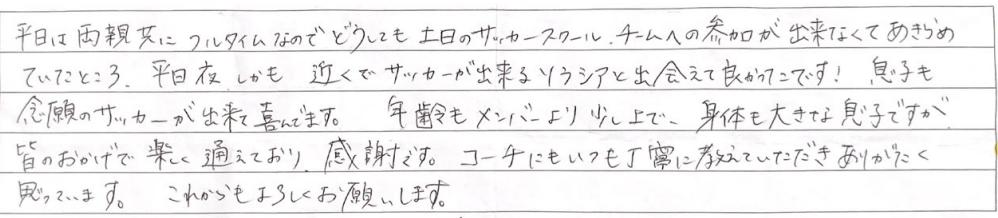 平日は両親共にフルタイムなのでどうしても土日のサッカースクール、チームへの参加が出来なくてあきらめ
ていたところ、平日夜、しかも近くでサッカーが出来るソラシアと出会えて良かったです！息子も
念願のサッカーが出来て喜んでます。年齢もメンバーより少し上で、身体も大きな息子ですが、
皆のおかげで楽しく通えており、感謝です。コーチにもいつも丁寧に教えていただきありがたく
思っています。これからもよろしくお願いします。